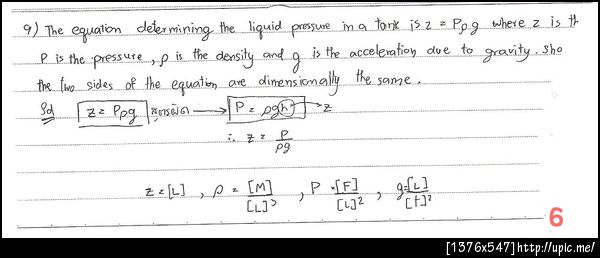 9) The equation determining the liquid pressure in a tank is z = Pρg where z is th
P is the pressure, ρ is the density and g is the acceleration due to gravity. Sho
the two sides of the equation are dimensionally the same.
Sol z = Pρg → P = ρgh → z
∴ z = P/ρg
z = [L] , ρ = [M]/[L]³ , P = [F]/[L]² , g = [L]/[t]²
6
[1376x547]http://upic.me/